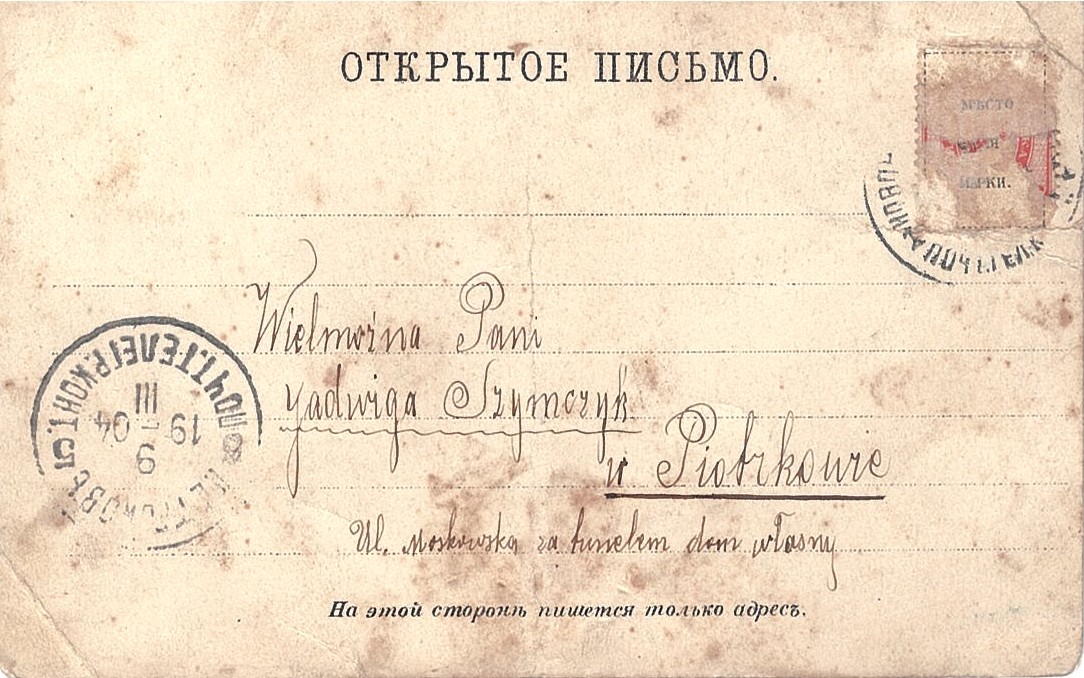 ОТКРЫТОЕ ПИСЬМО.
МѢСТО
МАРКИ.
Wielmożna Pani
Jadwiga Szymczyk
w Piotrkowie
Ul. Moskowska za tunelem dom własny
ПОЧТ.ТЕЛЕГР.КОНТ.
III
19 04
9
На этой сторонѣ пишется только адресъ.